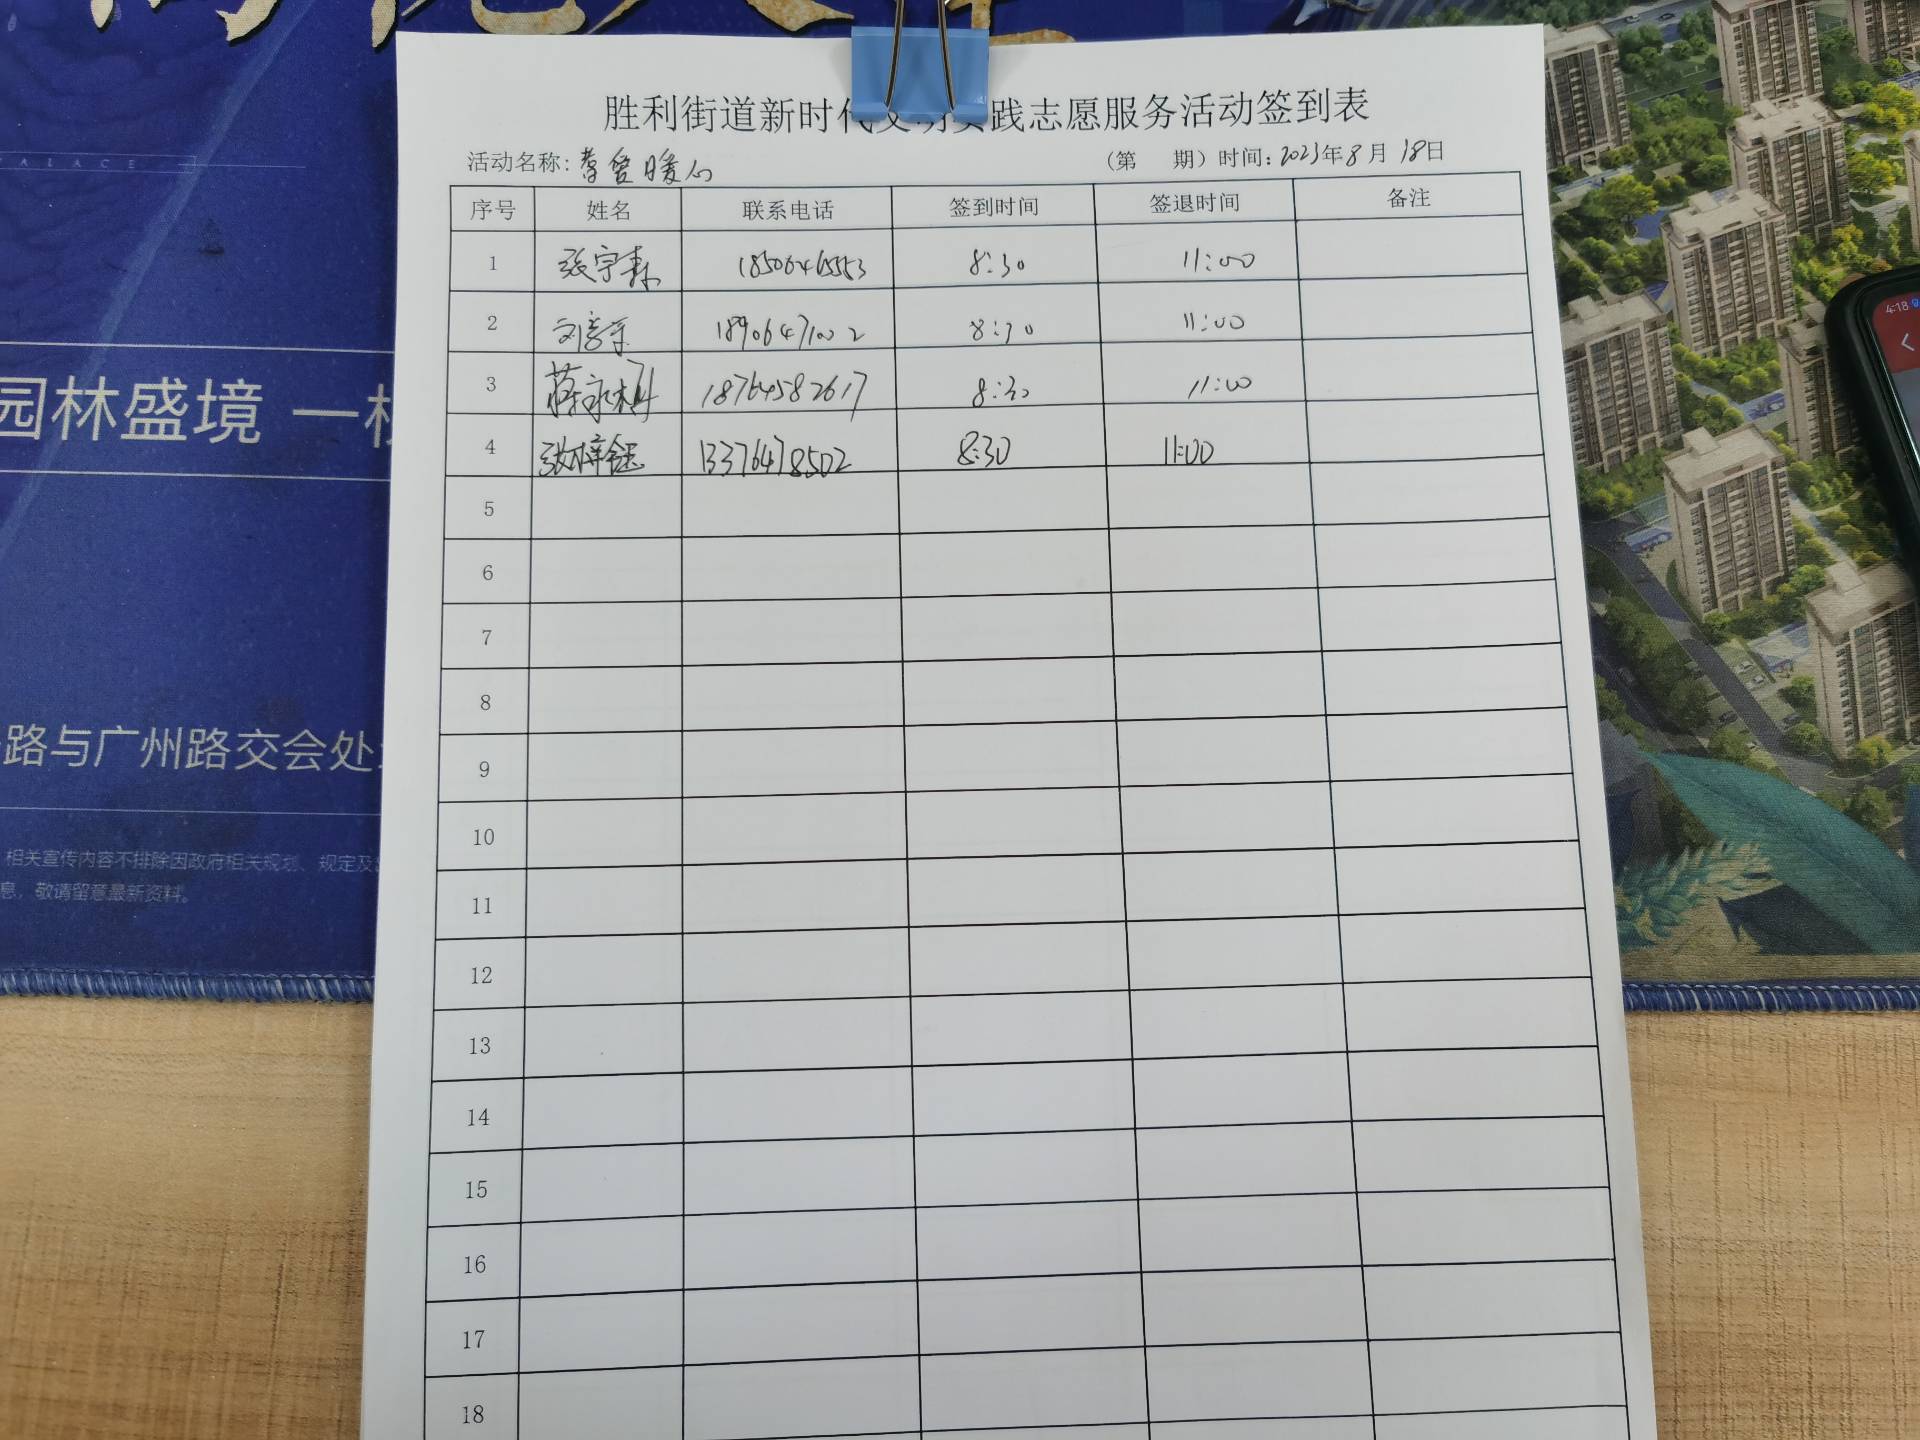 胜利街道新时代文明实践志愿服务活动签到表
活动名称: 暖心 (第 期) 时间: 2023年8月18日
序号 姓名 联系电话 签到时间 签退时间 备注
1 张宇森 8:30 11:00
2 18906471002 8:30 11:00
3 蒋永桐 18764582617 8:30 11:00
4 张梓钰 13376478502 8:30 11:00
5
6
7
8
9
10
11
12
13
14
15
16
17
18
PALACE
园林盛境 一
路与广州路交会处
相关宣传内容不排除因政府相关规划、规定及
息，敬请留意最新资料。
4:18